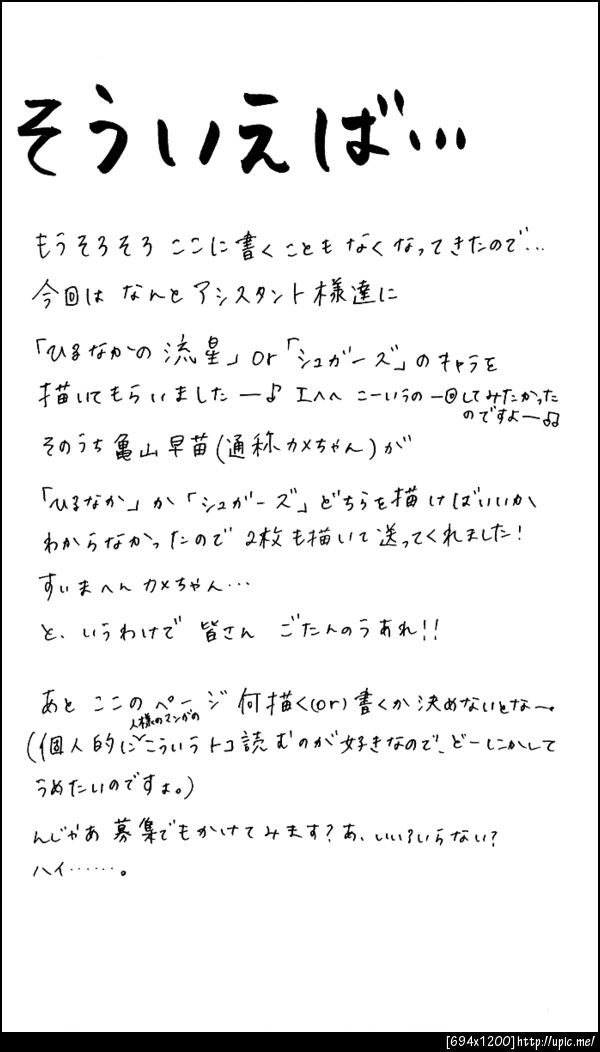 そういえば…
もうそろそろ ここに書くことも なくなってきたので…
今回は なんと アシスタント様達に
「ひるなかの流星」or「シュガーズ」のキャラを
描いてもらいましたー♪ エヘヘ こーいうの一回してみたかった
のですよー♫
そのうち亀山早苗(通称カメちゃん)が
「ひるなか」か「シュガーズ」どちらを描けばいいか
わからなかったので 2枚も描いて送ってくれました!
すいまへん カメちゃん…
と、いうわけで 皆さん ごたんのうあれ!!
あと ここのページ 何描く(or)書くか決めないとなー
人様のマンガの
(個人的にこういうトコ読むのが好きなので、どーにかして
うめたいのですよ。)
んじゃあ 募集でもかけてみます?あ、いい?いらない?
ハイ……。
[694x1200]http://upic.me/